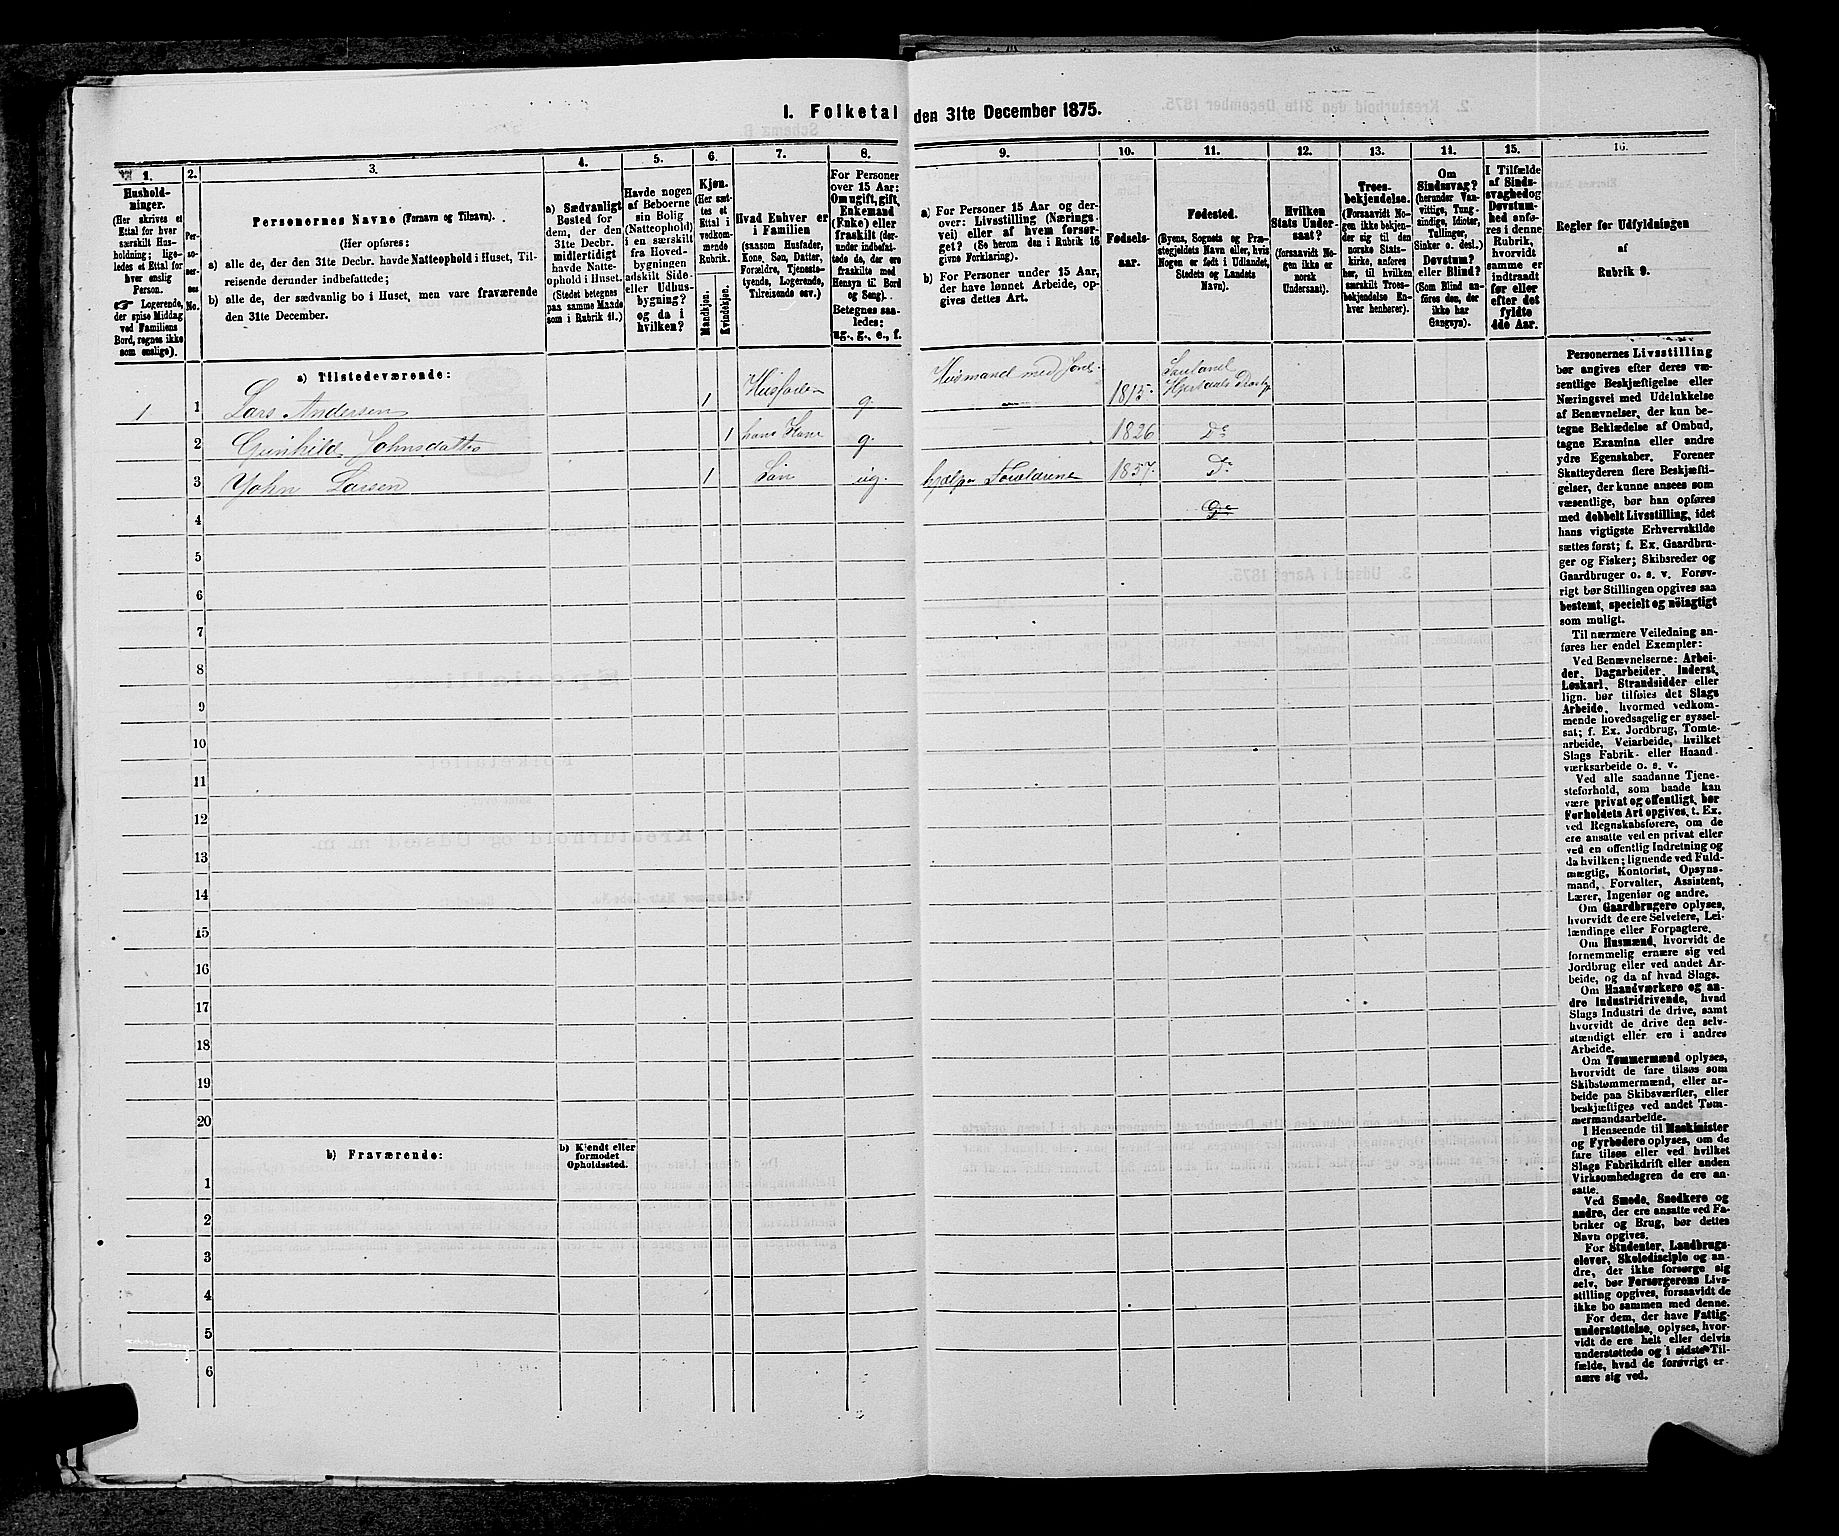 1. Folketal den 31te December 1875.
1.
Hushold-
ninger.
(Her skrives et
Ettal for hver
særskilt Hus-
holdning; lige-
ledes et Ettal for
hver enslig
Person.
☞ Logerende,
der spise Middag
ved Familiens
Bord, regnes ikke
som enslige).
2.
Per-
so-
ner-
nes
No.
3.
Personernes Navne (Fornavn og Tilnavn).
(Her opføres:
a) alle de, der den 31te Decbr. havde Natteophold i Huset, Til-
reisende derunder indbefattede;
b) alle de, der sædvanlig bo i Huset, men vare fraværende
den 31te December.
4.
a) Sædvanligt
Bosted for
dem, der den
31te Decbr.
midlertidigt
havde Natte-
ophold i Huset.
(Stedet betegnes
paa samme Maade
som i Rubrik 11.)
5.
Havde nogen
af Beboerne
sin Bolig
(Natteophold)
i en særskilt
fra Hoved-
bygningen
adskilt Side-
eller Udhus-
bygning?
og da i
hvilken?
6.
Kjøn.
(Her sæt-
tes et
Ettal i
vedkom-
mende
Rubrik.
Mandkjøn.
Kvindekjøn.
7.
Hvad Enhver er
i Familien
(saasom Husfader,
Kone, Søn, Datter,
Forældre, Tjeneste-
tyende, Logerende,
Tilreisende osv.)
8.
For Personer
over 15 Aar:
Om ugift, gift,
Enkemand
(Enke) eller
fraskilt (der-
under indbefat-
tede de, der ere
fraskilte med
Hensyn til Bord
og Seng).
Betegnes saa-
ledes:
ug., g., e., f.
9.
a) For Personer 15 Aar og der-
over: Livsstilling (Nærings-
vei) eller af hvem forsør-
get? (Se herom den i Rubrik 16
givne Forklaring).
b) For Personer under 15 Aar,
der have lønnet Arbeide, op-
gives dettes Art.
10.
Fødsels-
aar.
11.
Fødested.
(Byens, Sognets og Præ-
stegjeldets Navn eller, hvis
Nogen er født i Udlandet,
Stedets og Landets
Navn).
12.
Hvilken
Stats Under-
saat?
(forsaavidt No-
gen ikke er
norsk
Undersaat).
13.
Troes-
bekjendelse.
(Forsaavidt No-
gen ikke bekjen-
der sig til den
norske Stats-
kirke, anføres
her, til hvilken
særskilt Troes-
bekjendelse En-
hver henhører).
14.
Om
Sindssvag?
(herunder Van-
vittige, Tung-
sindige, Idioter,
Tullinger,
Sinker o. desl.)
Døvstum?
eller Blind?
(Som Blind an-
føres den, der
ikke har
Gangsyn).
15.
I Tilfælde
af Sinds-
svaghed og
Døvstum-
hed anfø-
res i denne
Rubrik,
hvorvidt
samme er
indtraadt
før eller
efter det
fyldte
4de Aar.
16.
Regler før Udfyldningen
af
Rubrik 9.
a) Tilstedeværende:
1 1 Lars Andersen 1 Husfader g. Husmand med Jord. 1815. Sauland Hjertdals Præstgj
2 Gunhild Johnsdatter 1 hans Kone g. — 1826 Do
3 John Larsen 1 Søn ug. hjælper Forældrene 1857. Do
4
5
6
7
8
9
10
11
12
13
14
15
16
17
18
19
20
b) Fraværende:
b) Kjendt eller
formodet
Opholdssted.
1
2
3
4
5
6
Personernes Livsstilling
bør angives efter deres væ-
sentlige Beskjæftigelse eller
Næringsvei med Udelukkelse
af Benævnelser, der kun be-
tegne Beklædelse af Ombud,
tagne Examina eller andre
ydre Egenskaber. Forener
Skatteyderen flere Beskjæfti-
gelser, der kunne ansees som
væsentlige, bør han opføres
med dobbelt Livsstilling, idet
hans vigtigste Erhvervskilde
sættes først; f. Ex. Gaardbru-
ger og Fisker; Skibsreder og
Gaardbruger o. s. v. Forøv-
rigt bør Stillingen opgives saa
bestemt, specielt og nöiagtigt
som muligt.
Til nærmere Veiledning an-
føres her endel Exempler:
Ved Benævnelserne: Arbei-
der, Dagarbeider, Inderst,
Løskarl, Strandsidder eller
lign. bør tilføies det Slags
Arbeide, hvormed vedkom-
mende hovedsagelig er syssel-
sat; f. Ex. Jordbrug, Tomte-
arbeide, Veiarbeide, hvilket
Slags Fabrik- eller Haand-
værksarbeide o. s. v.
Ved alle saadanne Tjene-
steforhold, som baade kan
være privat og offentligt, bør
Forholdets Art opgives, t. Ex.
ved Regnskabsførere, om de
ere ansatte ved en privat eller
ved en offentlig Indretning og
da hvilken; lignende ved Fuld-
mægtig, Kontorist, Opsyns-
mand, Forvalter, Assistent,
Lærer, Ingeniør og andre.
Om Gaardbrugere oplyses,
hvorvidt de ere Selveiere, Lei-
lændinge eller Forpagtere.
Om Husmænd, hvorvidt de
fornemmelig ernære sig ved
Jordbrug eller ved andet Ar-
beide, og da af hvad Slags.
Om Haandværkere og an-
dre Industridrivende, hvad
Slags Industri de drive, samt
hvorvidt de drive den selv-
stændigt eller ere i andres
Arbeide.
Om Tømmermænd oplyses,
hvorvidt de fare tilsøs som
Skibstømmermænd, eller ar-
beide paa Skibsværfter, eller
beskjæftiges ved andet Tøm-
mermandsarbeide.
I Henseende til Maskinister
og Fyrbødere oplyses, om de
fare tilsøs eller ved hvilket
Slags Fabrikdrift eller anden
Virksomhedsgren de ere an-
satte.
Ved Smede, Snedkere og
andre, der ere ansatte ved Fa-
briker og Brug, bør dettes
Navn opgives.
For Studenter, Landbrugs-
elever, Skoledisciple og an-
dre, der ikke forsørge sig
selv, bør Forsørgerens Livs-
stilling opgives, forsaavidt de
ikke bo sammen med denne.
For dem, der have Fattig-
understøttelse, oplyses, hvor-
vidt de ere helt eller delvis
understøttede og i sidste Til-
fælde, hvad de forøvrigt er-
nære sig ved.